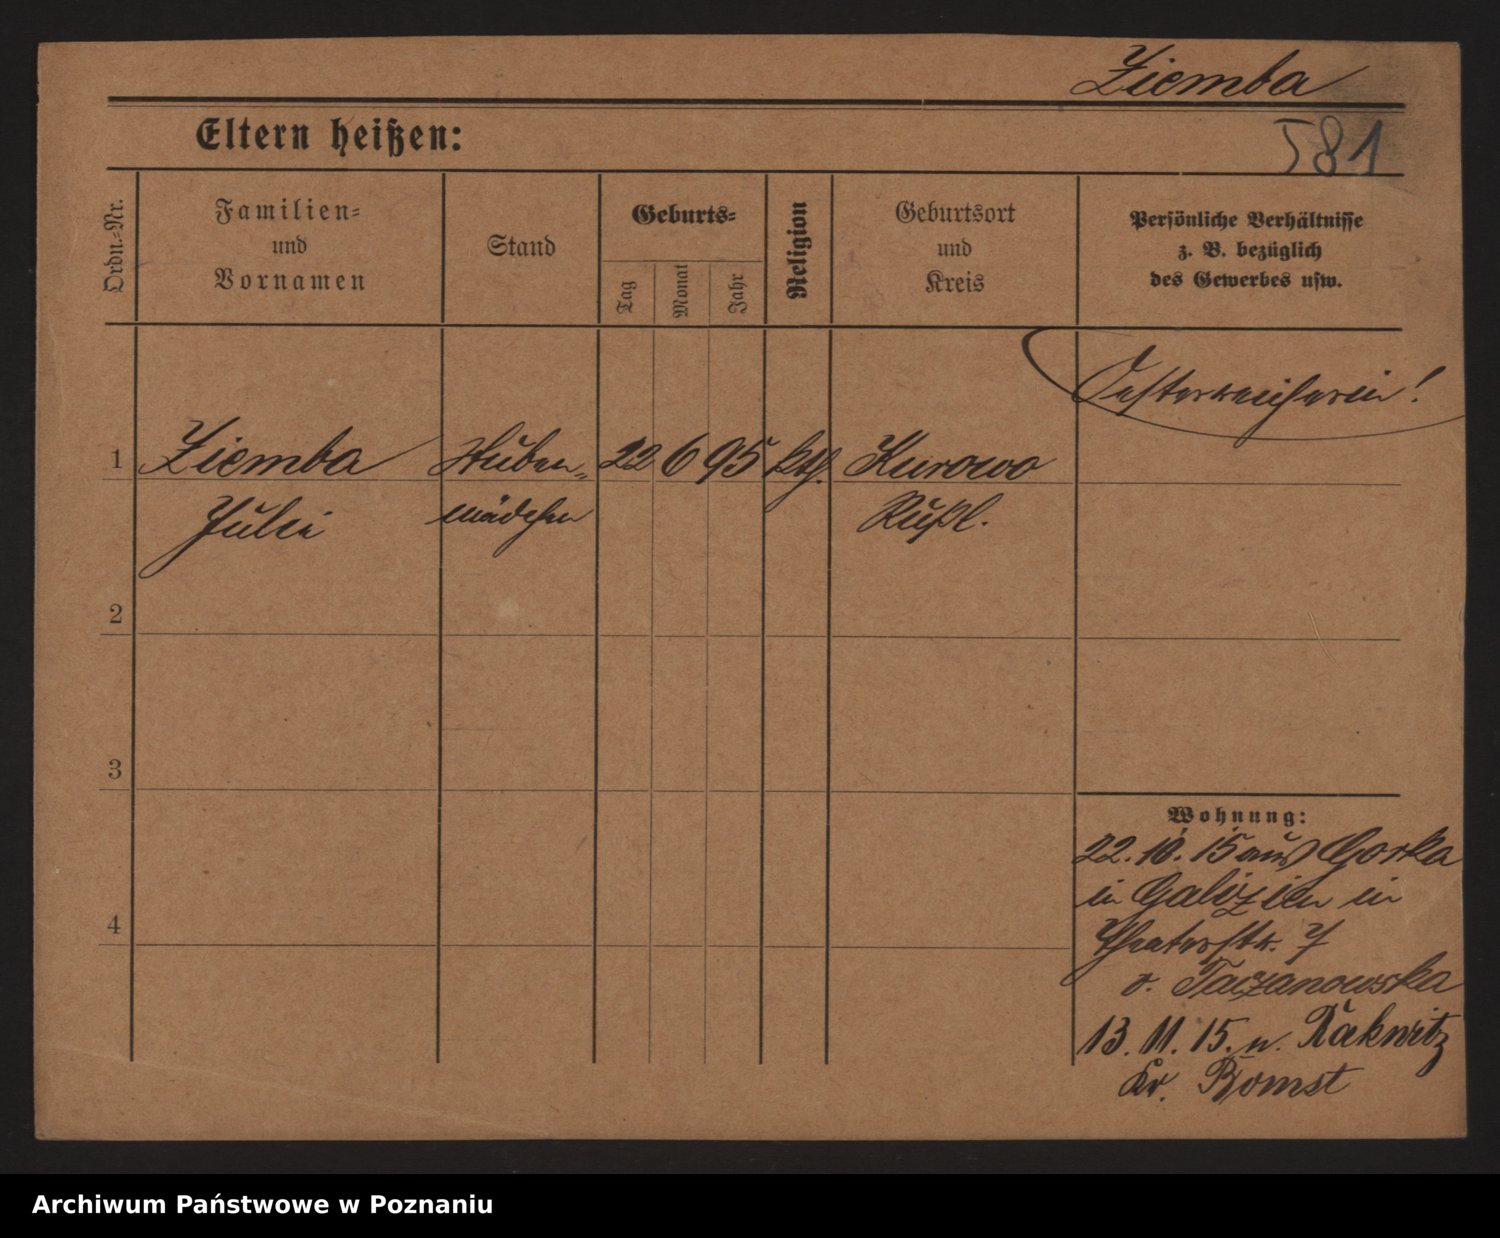 Ziemba
Eltern heißen:
581
Ordn.-Nr.
Familien-
und
Vornamen
Stand
Geburts-
Tag
Monat
Jahr
Religion
Geburtsort
und
Kreis
Persönliche Verhältnisse
z. B. bezüglich
des Gewerbes usw.
Oesterreicherin!
1 Ziemba Stuben- 22 6 95 kth. Kurowo
Julie mädchen Rußl.
2
3
4
Wohnung:
22.10.15 aus Gorka
in Galizien in
Theaterstr. 7
v. Taczanowska
13.11.15. n. Rakwitz
Kr. Bomst
Archiwum Państwowe w Poznaniu